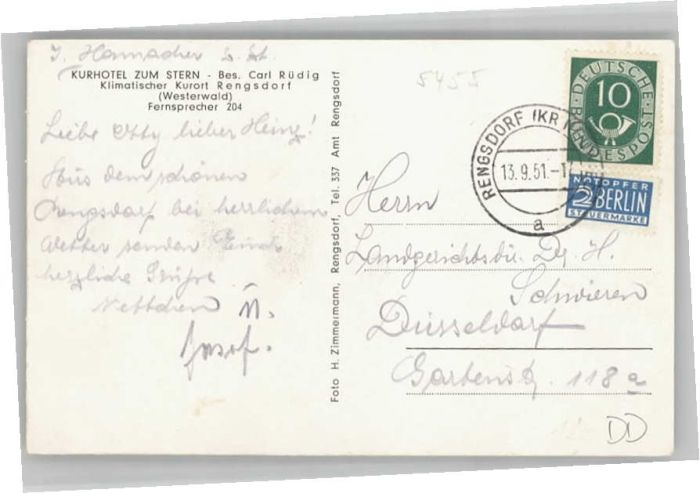 J. Hamacher z. Zt.
KURHOTEL ZUM STERN - Bes. Carl Rüdig
Klimatischer Kurort Rengsdorf
(Westerwald)
Fernsprecher 204
Liebe Etty lieber Heinz!
Aus dem schönen
Rengsdorf bei herrlichem
Wetter senden Euch
herzliche Grüsse
Nettchen u.
Josef.
Foto H. Zimmermann, Rengsdorf, Tel. 337 Amt Rengsdorf
5455
DEUTSCHE BUNDESPOST
10
RENGSDORF (KR
13.9.51.-1
a
NOTOPFER
2 BERLIN
STEUERMARKE
Herrn
Landgerichtsdir. Dr. H.
Schwieren
Düsseldorf
Gartenstr. 118a
DD